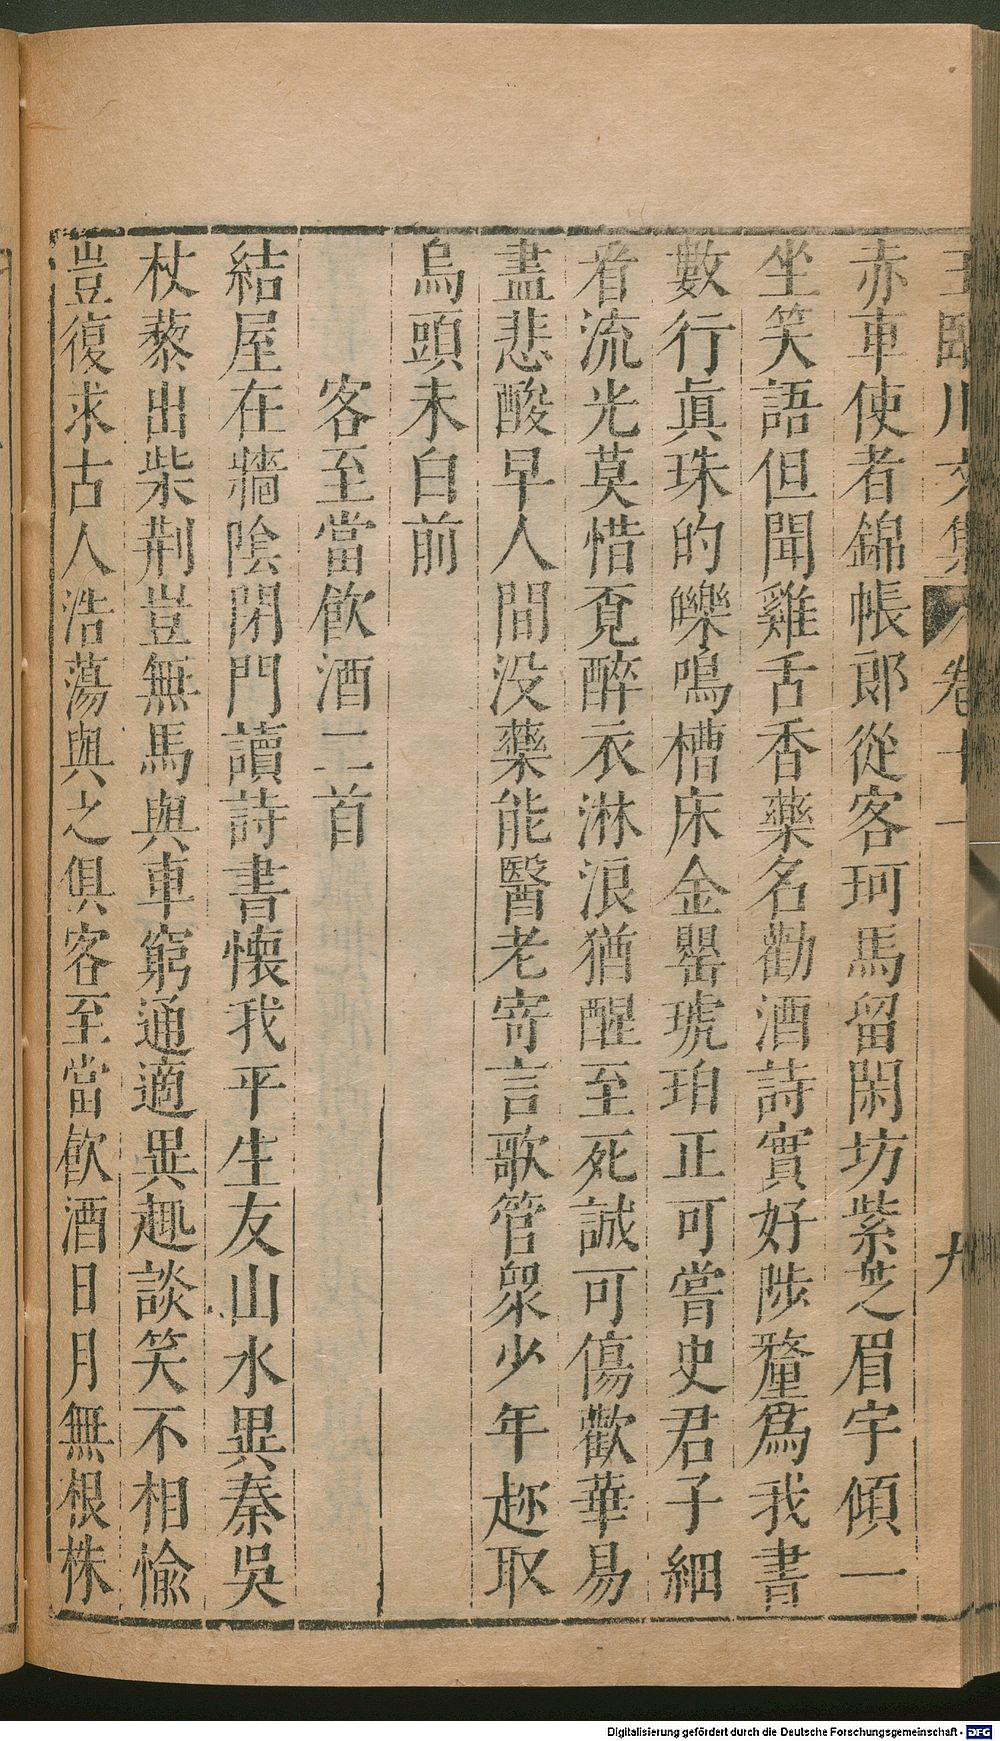 王臨川文集 卷十一 九
赤車使者錦帳郎從客珂馬留閑坊紫芝眉宇傾一
坐笑語但聞雞舌香藥名勸酒詩實好陟釐爲我書
數行眞珠的皪鳴槽床金罌琥珀正可嘗史君子細
看流光莫惜覔醉衣淋浪猶醒至死誠可傷歡華易
盡悲酸早人間没藥能醫老寄言歌管衆少年趂取
烏頭未白前
客至當飲酒二首
結屋在牆陰閉門讀詩書懷我平生友山水異秦吳
杖藜出柴荆豈無馬與車窮通適異趣談笑不相愉
豈復求古人浩蕩與之俱客至當飲酒日月無根株
Digitalisierung gefördert durch die Deutsche Forschungsgemeinschaft - DFG